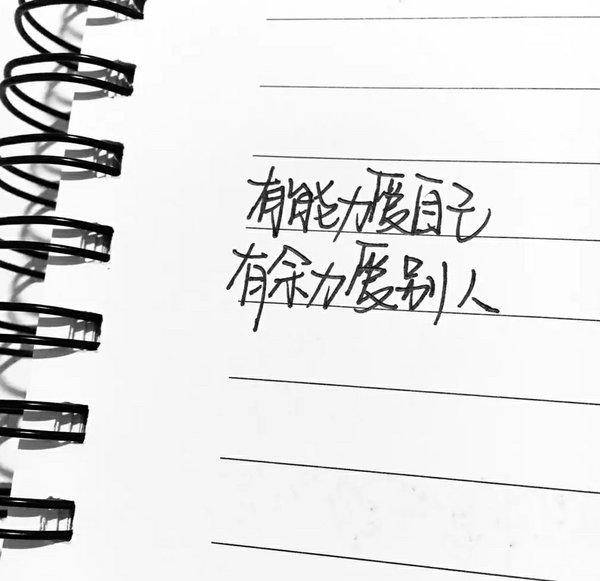 有能力爱自己
有余力爱别人